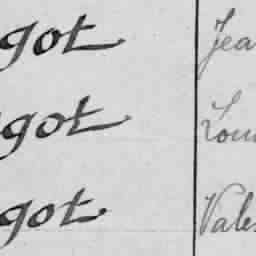 got Jea
got Lou
got Vale